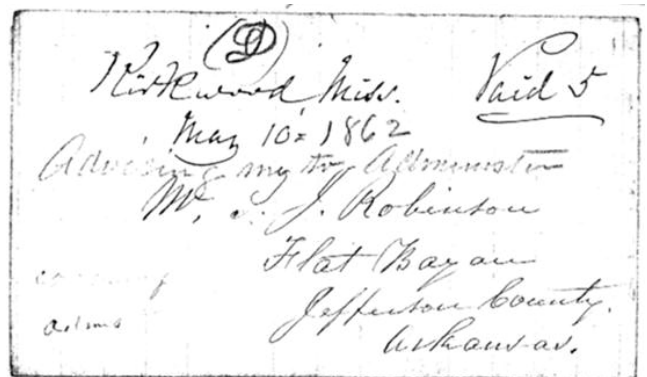 (D)
Kirkwood, Miss. Paid 5
May 10= 1862
Advising my to Administer
Mr. J. Robinson
Flat Bayou
Jefferson County.
Arkansas.